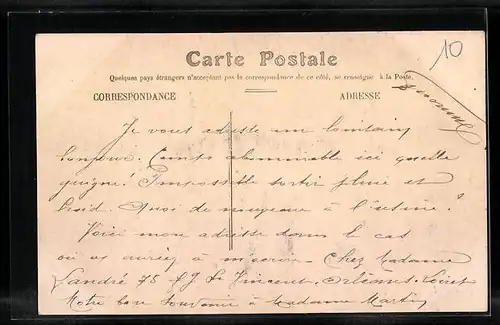 10
Carte Postale
Quelques pays étrangers n'acceptant pas la correspondance de ce côté, se renseigner à la Poste.
CORRESPONDANCE
ADRESSE
Je vous adresse un lointain
bonjour. Temps abominable ici quelle
guigne! Impossible sortir pluie et
froid. Quoi de nouveau à l'usine?
Voici mon adresse dans le cas
où vs auriez à m'écrire. Chez Madame
Landré 75 fg St Vincent. Orléans. Loiret
Notre bon souvenir à Madame Martin